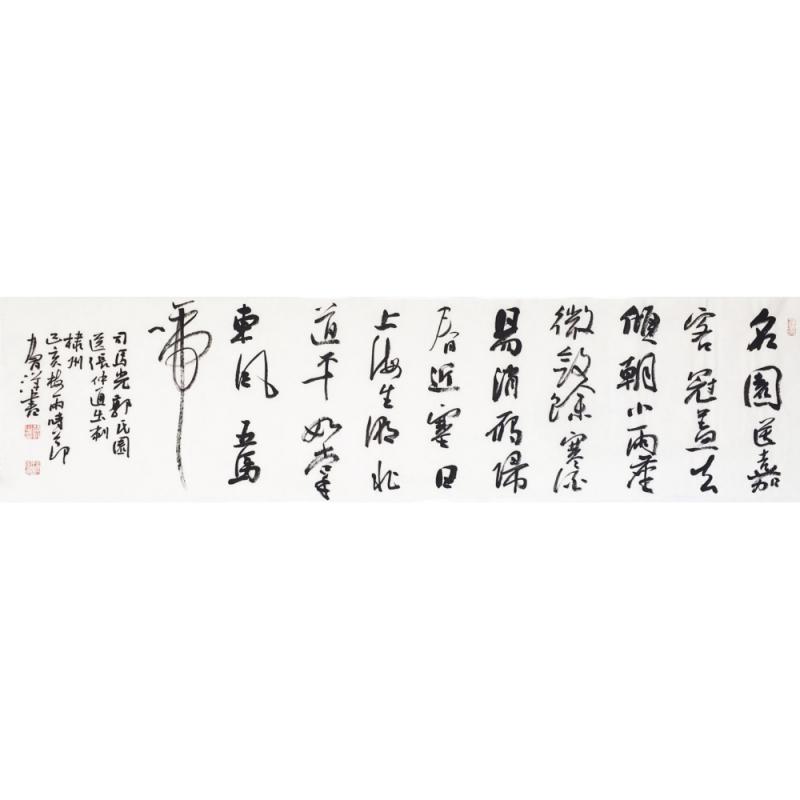 名園送嘉
客冠蓋去
傾朝小雨塵
微斂餘寒酒
易消雁歸
春近塞日
上海生潮北
道平如掌
東風五馬
司馬光郭氏園
送張仲通出刺
棣州
己亥梅雨時節
書